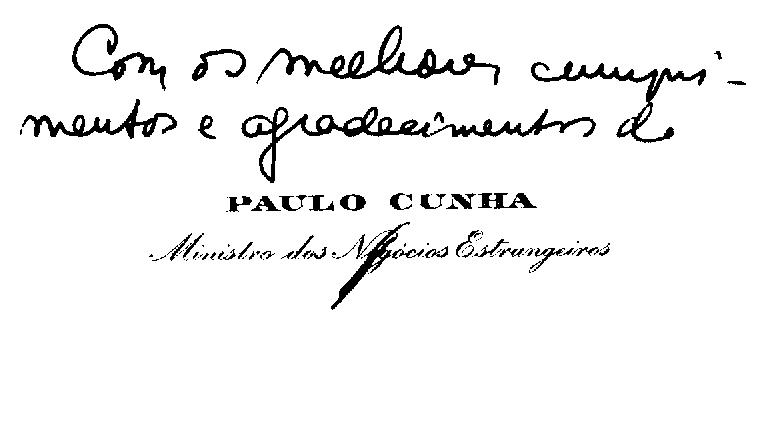 Com os melhores cumpri-
mentos e agradecimentos do
PAULO CUNHA
Ministro dos Negócios Estrangeiros